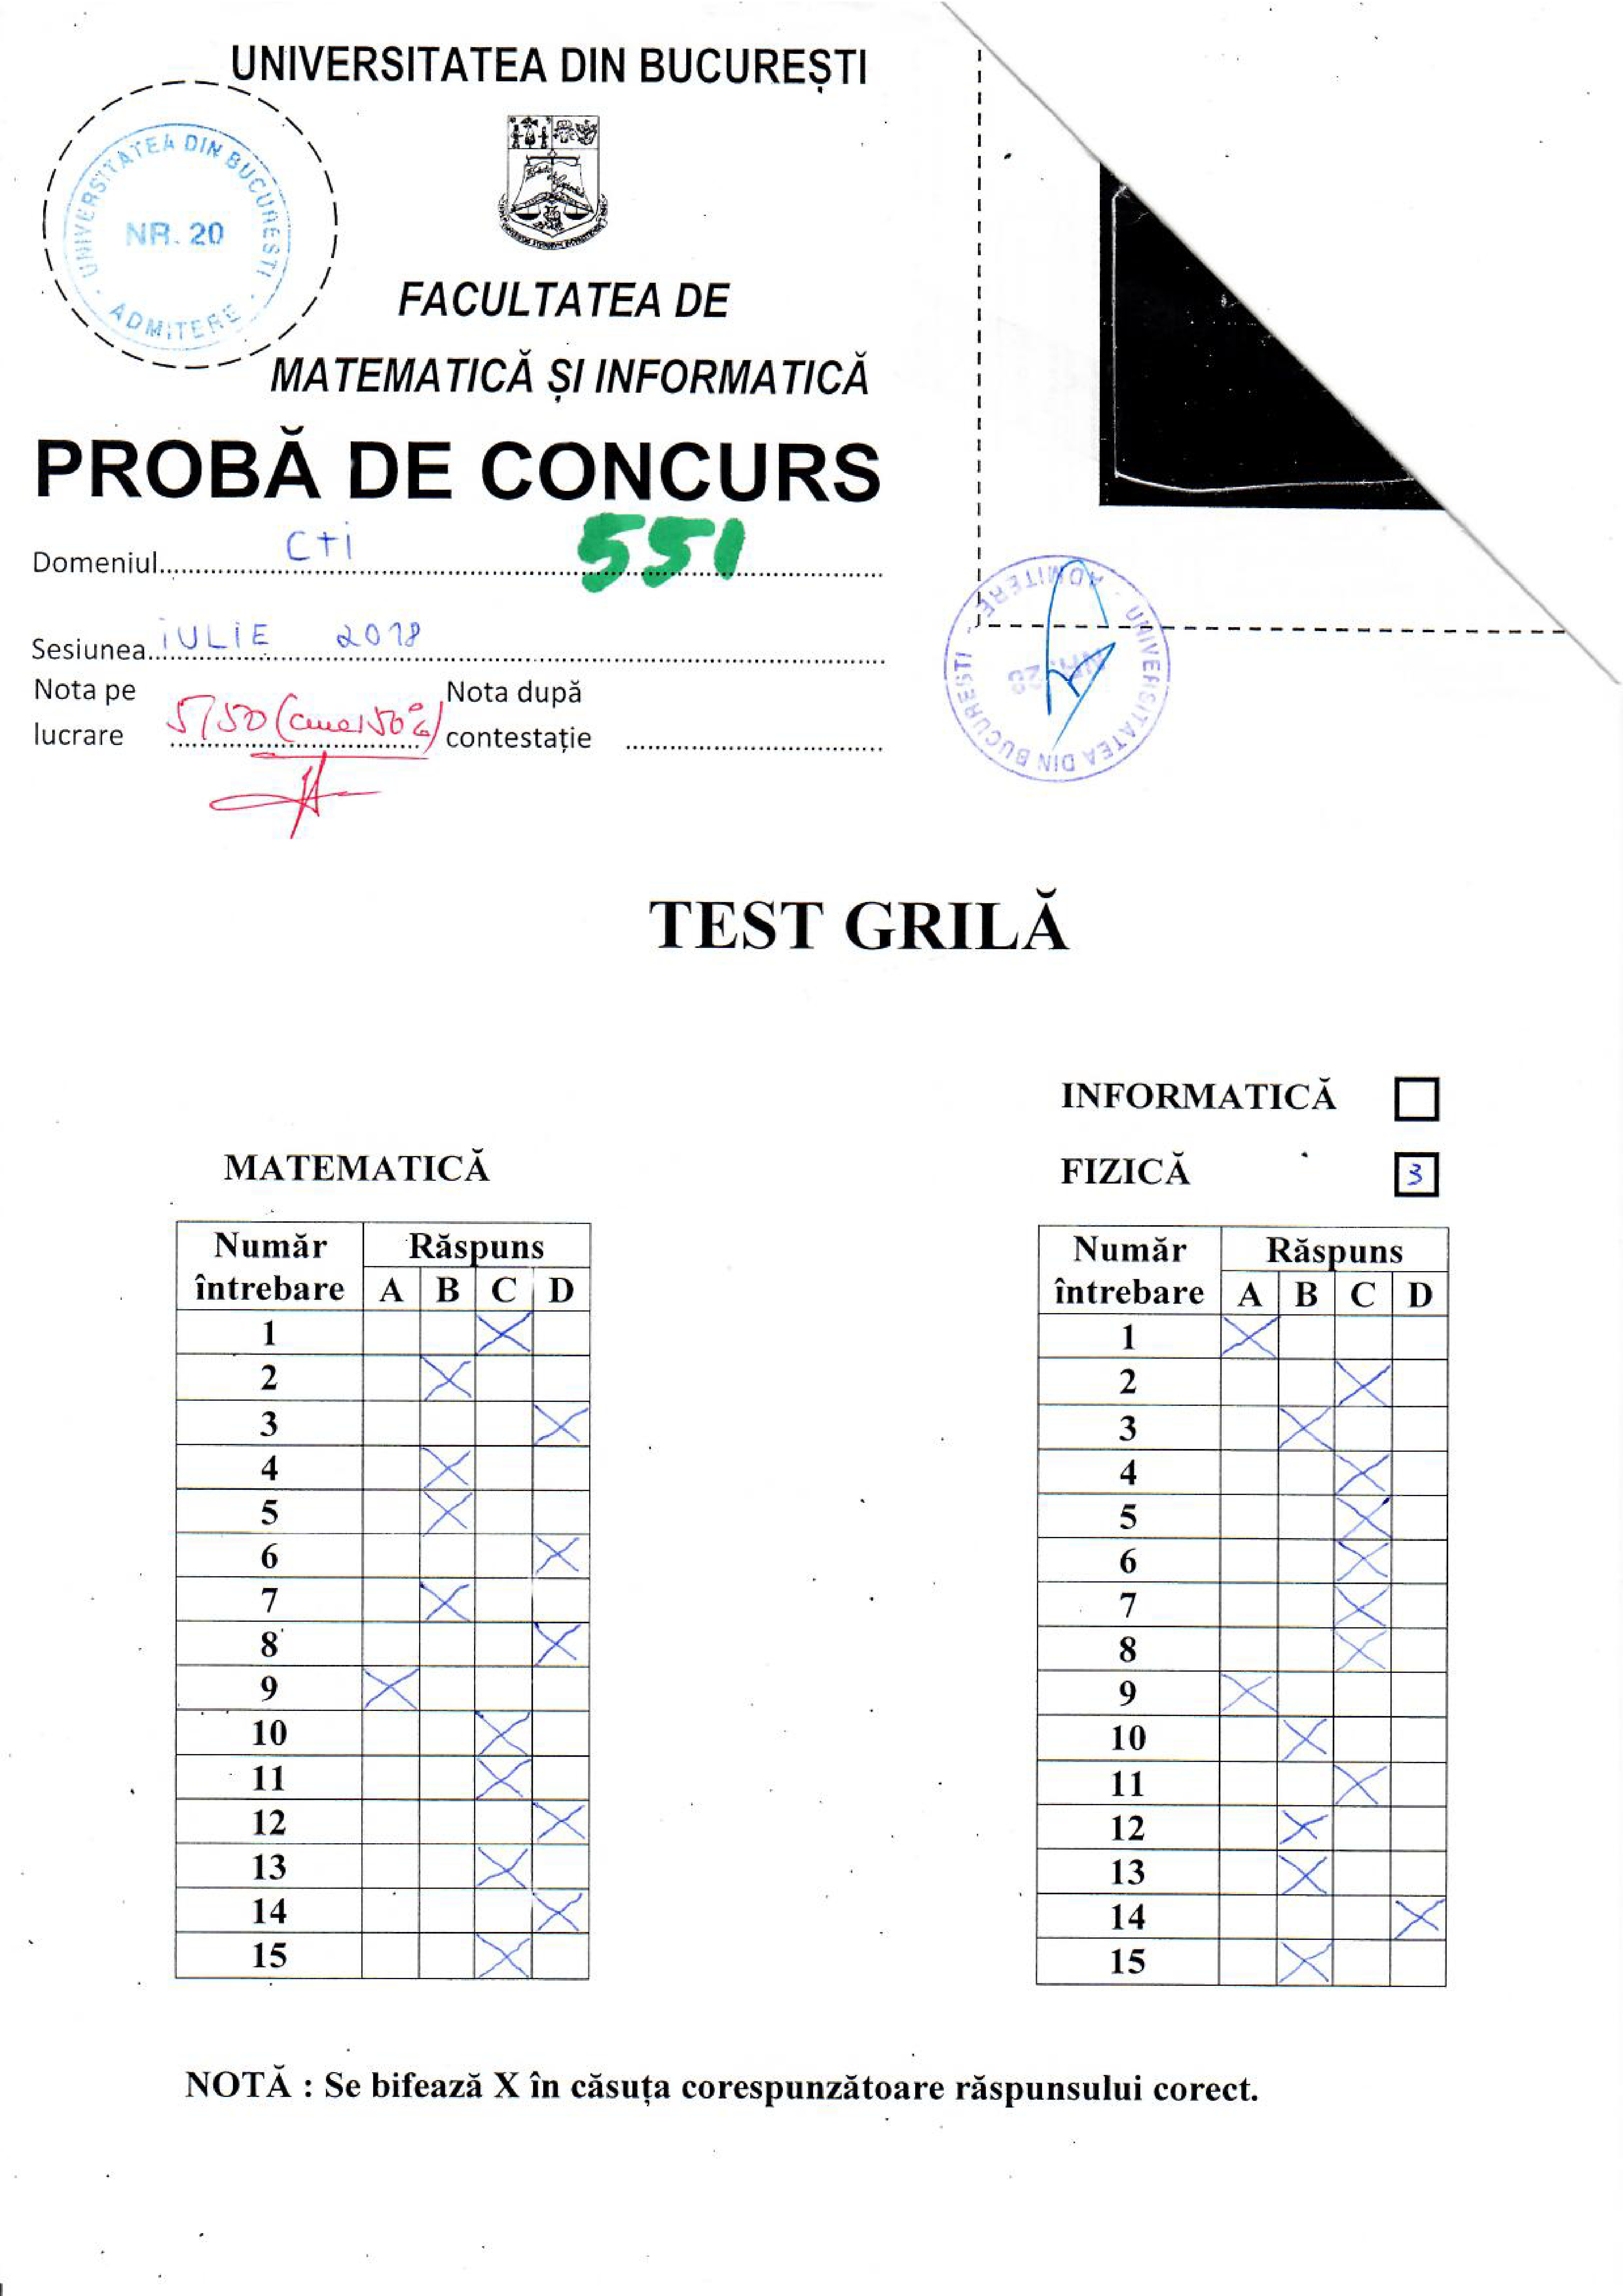 UNIVERSITATEA DIN BUCUREȘTI
UNIVERSITATEA DIN BUCURESTI
NR. 20
ADMITERE
FACULTATEA DE
MATEMATICĂ ȘI INFORMATICĂ
PROBĂ DE CONCURS
Domeniul CTI 551
Sesiunea IULIE 2018
Nota pe
lucrare 5/50
Nota după
contestație
UNIVERSITATEA DIN BUCURESTI
ADMITERE
TEST GRILĂ
INFORMATICĂ
FIZICĂ 3
MATEMATICĂ
Număr întrebare Răspuns
A B C D
1 X
2 X
3 X
4 X
5 X
6 X
7 X
8 X
9 X
10 X
11 X
12 X
13 X
14 X
15 X
Număr întrebare Răspuns
A B C D
1 X
2 X
3 X
4 X
5 X
6 X
7 X
8 X
9 X
10 X
11 X
12 X
13 X
14 X
15 X
NOTĂ : Se bifează X în căsuța corespunzătoare răspunsului corect.